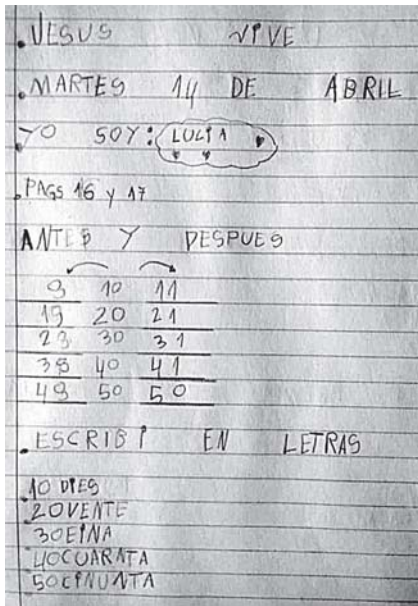 .JESUS VIVE
.MARTES 14 DE ABRIL
.YO SOY: LUCIA
.PAGS 16 Y 17
ANTES Y DESPUES
9 10 11
19 20 21
29 30 31
39 40 41
49 50 50
.ESCRIBI EN LETRAS
10 DIES
20 VENTE
30 EINA
40 CUARATA
50 CINUNTA